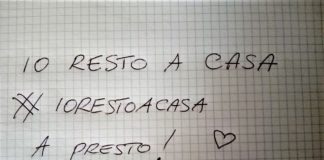 IO RESTO A CASA
#IORESTOACASA
A PRESTO! ♡